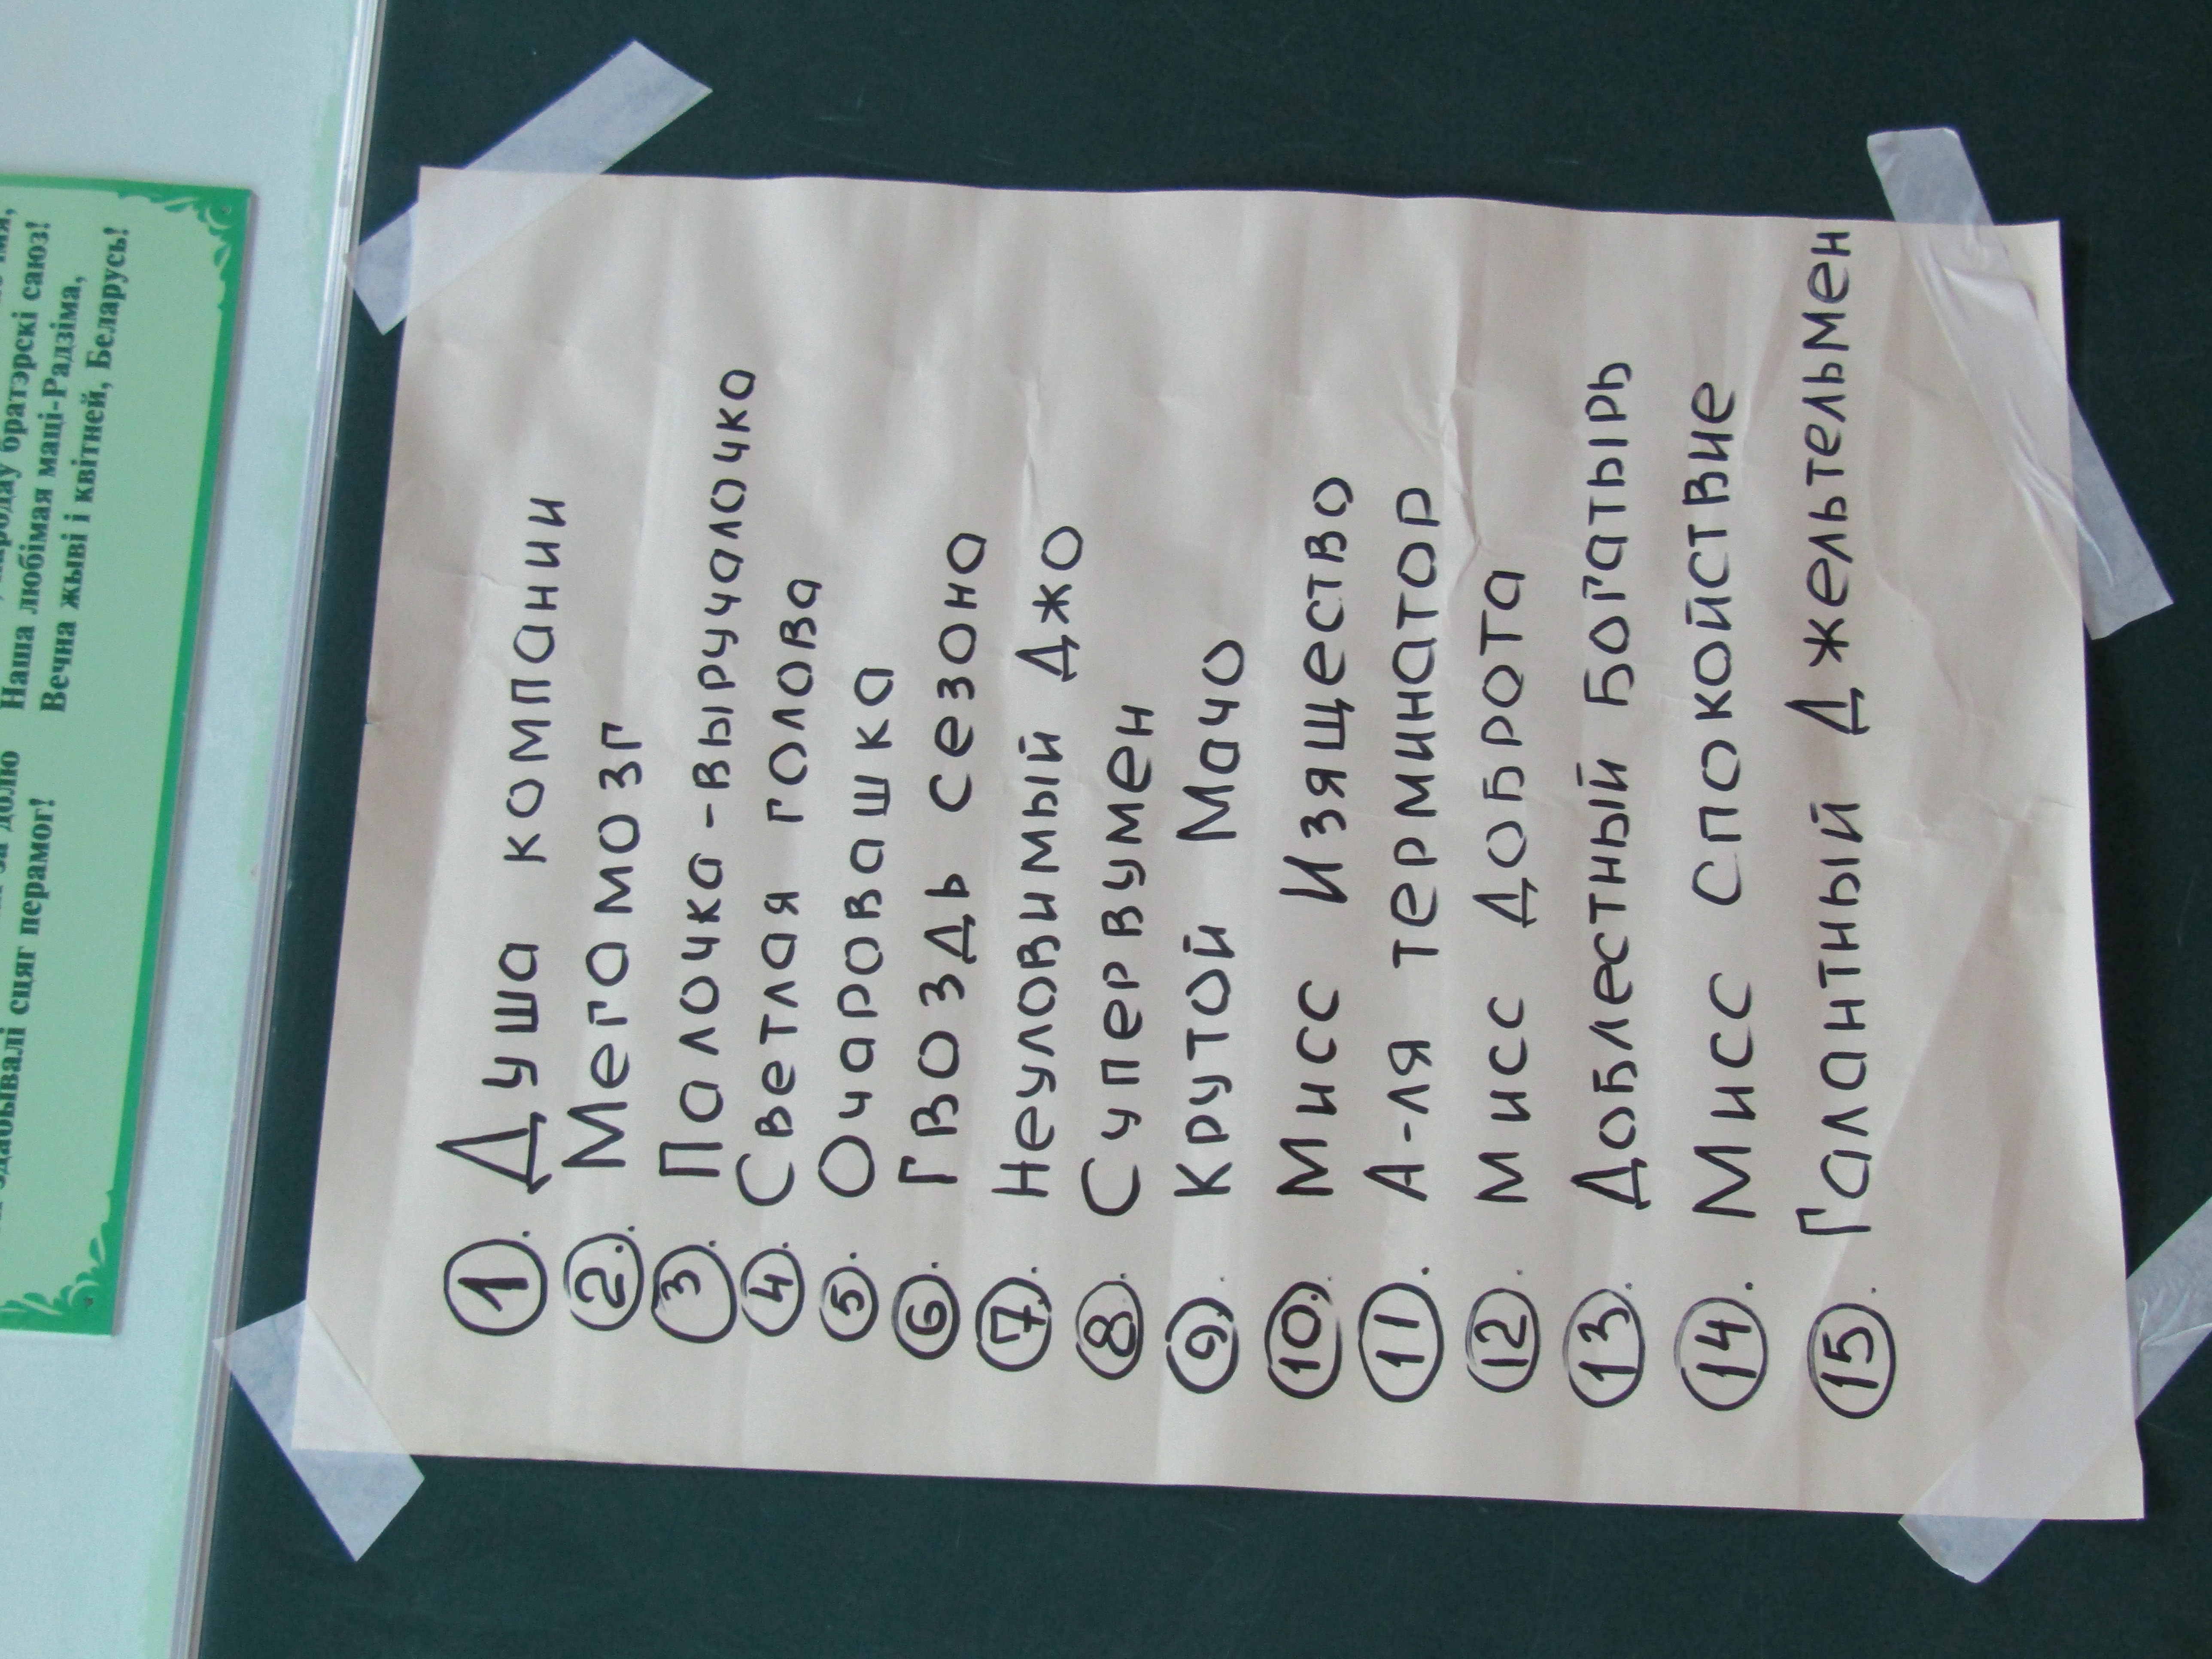 за долю
здабывалі сцяг перамог!
братэрскі саюз!
Наша любімая маці-Радзіма,
Вечна жыві і квітней, Беларусь!
1. Душа компании
2. Мегамозг
3. Палочка-выручалочка
4. Светлая голова
5. Очаровашка
6. Гвоздь сезона
7. Неуловимый Джо
8. Супервумен
9. Крутой Мачо
10. Мисс Изящество
11. А-ля терминатор
12. Мисс Доброта
13. Доблестный Богатырь
14. Мисс Спокойствие
15. Галантный Джельтельмен